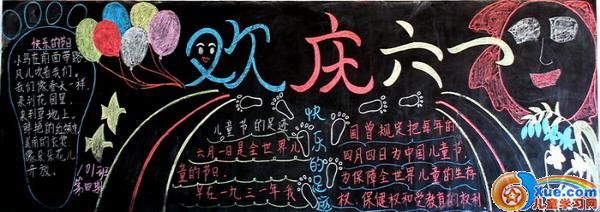 欢庆六一
快乐的节日
小鸟在前面带路
风儿吹着我们.
我们像春天一样,
来到花园里,
来到草地上.
鲜艳的红领巾
美丽的衣裳
像朵朵花儿
开放.
101班
第四期
儿童节的足迹
六月一日是全世界儿
童的节日.
早在一九三一年我
快乐的足迹
国曾规定把每年的
四月四日为中国儿童节,
为保障全世界儿童的生存
权、保健权和受教育的权利
Xue.com
儿童学习网